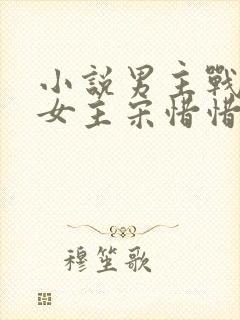 小說男主戰
女主宋惜惜
穆笙歌